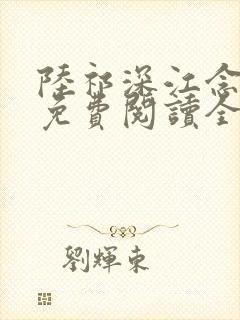 陸祁深江念
免費閱讀全
劉輝東